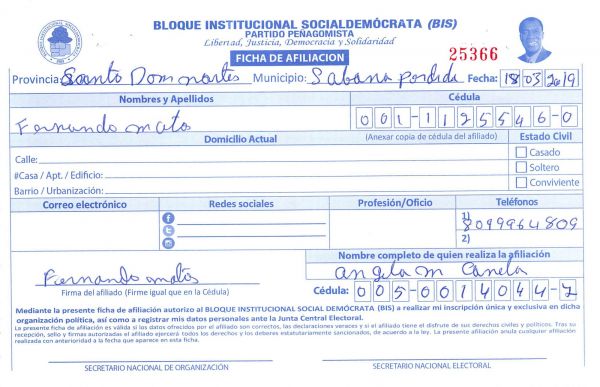 BLOQUE INSTITUCIONAL SOCIALDEMÓCRATA (BIS)
PARTIDO PEÑAGOMISTA
Libertad, Justicia, Democracia y Solidaridad
FICHA DE AFILIACION
25366
Provincia: Santo Dom nortes Municipio: Sabana perdida Fecha: 18 03 2019
Nombres y Apellidos Cédula
Fernando mato 001-1125546-0
Domicilio Actual (Anexar copia de cédula del afiliado) Estado Civil
Calle: Casado
#Casa / Apt. / Edificio: Soltero
Barrio / Urbanización: Conviviente
Correo electrónico Redes sociales Profesión/Oficio Teléfonos
1) 8099964809
2)
Nombre completo de quien realiza la afiliación
Fernando matos angela m Canela
Firma del afiliado (Firme igual que en la Cédula) Cédula: 005-0014044-7
Mediante la presente ficha de afiliación autorizo al BLOQUE INSTITUCIONAL SOCIAL DEMÓCRATA (BIS) a realizar mi inscripción única y exclusiva en dicha
organización política, así como a registrar mis datos personales ante la Junta Central Electoral.
La presente ficha de afiliación es válida si los datos ofrecidos por el afiliado son correctos, las declaraciones veraces y si el afiliado tiene el disfrute de sus derechos civiles y políticos. Tras su
recepción, sello y firmas autorizadas el afiliado ejercerá todos los derechos y los deberes estatutariamente sancionados, de acuerdo a la ley. La presente afiliación anula cualquier afiliación
realizada con anterioridad a la fecha que aparece en esta ficha.
SECRETARIO NACIONAL DE ORGANIZACIÓN SECRETARIO NACIONAL ELECTORAL